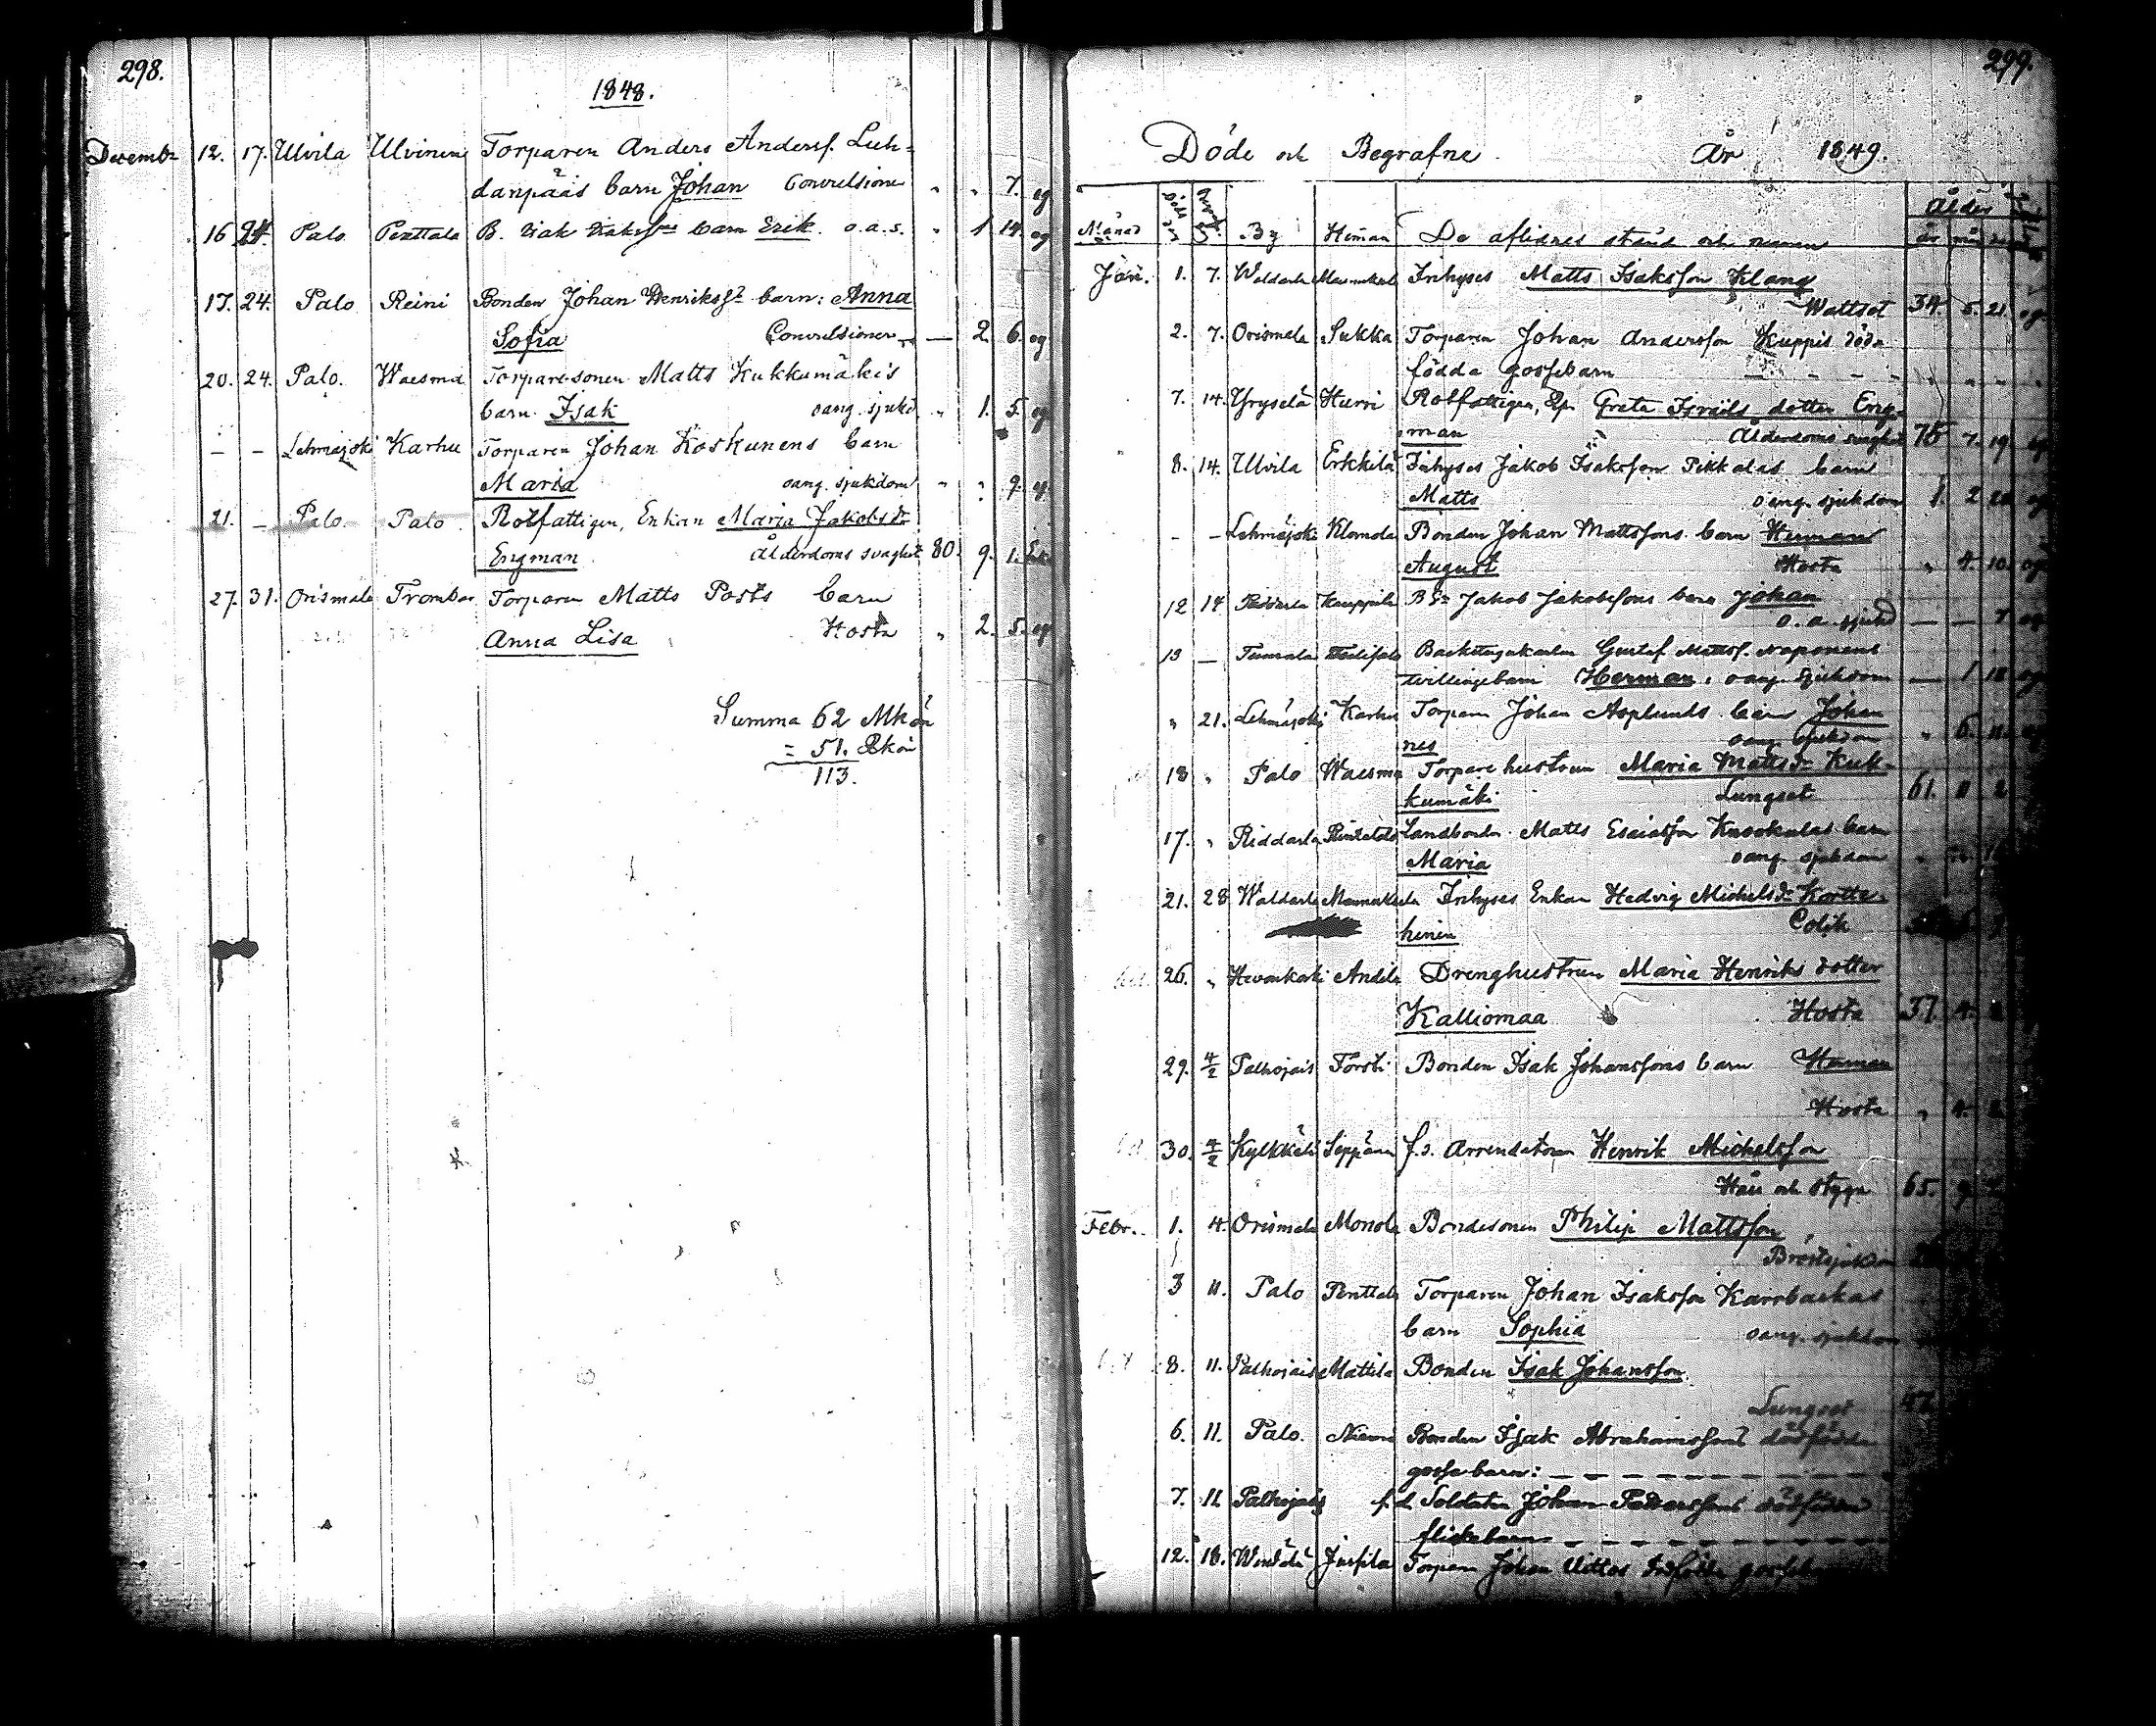 298.
1848.
Decembr 12. 17. Ulvila Ulvinen Torparen Anders Andersf. Luh-
danpääs barn Johan Convulsioner " " 7. og
16 24. Palo Penttala B. Isak Isaksf. barn Erik. o.a.s. " 1 14. og
17. 24. Palo Reini Bonden Johan Henriksfs barn: Anna
Sofia Convulsioner — 2. 6. og
20. 24. Palo. Waesmä Torparesonen Matts Kukkumäkis
barn Isak oang. sjukd " 1. 5. og
– – Lehmäjoki Karhu Torparen Johan Koskunens barn
Maria oang. sjukdom " " 9. og
21. – Palo. Palo Rotfattigen, Enkan Maria Jakobsdr
Engman Ålderdoms svaghet 80. 9. 1. Enk
27. 31. Orismala Trombar Torparen Matts Posts barn
Anna Lisa Hosta " 2. 5. og
Summa 62 Mkön
= 51. Qkön
113.
299.
Döde och Begrafne. År 1849.
Månad Död By Heman De aflidnes stånd och namn Ålder
år mån
Jan. 1. 7. Waldarla Inhyses Matts Isaksson Klang
Wattsot 34. 5. 21. og
2. 7. Orismala Sukka Torparen Johan Andersson Kuppis döda
födda gossebarn — — — —
7. 14. Yryselä Hurri Rotfattigen, Greta Israels dotter Eng-
man Ålderdoms svaghet 75 7. 19 og
8. 14. Ulvila Erkkilä Inhyses Jakob Isaksson Pikkalas barn
Matts oang. sjukdom 1. 2 og
– – Lehmäjoki Klemola Bonden Johan Mattssons barn Herman
August Hosta " 4. 10. og
12 14 Riddarla Kauppila Jakob Jakobssons barn Johan
o. a. sjukd — — 7 og
13 — Tuurala Backstugukarlen Gustaf Mattsf. Naponens
twillingebarn Herman, oang. sjukdom — 1 18 og
" 21. Lehmäjoki Karhu Torparen Johan Asplunds barn Johan
nes oang. sjukdom " 6. 11.
18 " Palo Waesmä Torparehustrun Maria Mattsdr Kuk-
kumäki Lungsot 61. 11 2
17. " Riddarla Rintala Landbonden Matts Esaiasson barn
Maria oang. sjukdom
21. 28 Waldarla Mannaksela Inhyses Enkan Hedvig Michelsdr Kortte-
hinen Colik
26. " Hevonkoski Andila Drenghustrun Maria Henriks dotter
Kalliomaa Hosta 37. 4.
29. 4/2 Palhojais Forsti Bonden Isak Johanssons barn Herman
Hosta " 4.
30. 4/2 Kylkkälä Seppänen f.d. Arrendatorn Henrik Michelsson
Håll och Stygn 65. 9
Febr. 1. 4. Orismala Monola Bondesonen Philip Mattsson
Bröstsjukdom
3 11. Palo Penttala Torparen Johan Isaksson Karrbackas
barn Sophia oang. sjukdom
8. 11. Palhojais Mattila Bonden Isak Johansson
Lungsot 47
6. 11. Palo. Niemi Bonden Isak Abrahamssons dödfödda
gossebarn: — — — —
7. 11. Palhojais f.d. Soldaten Johan Petterssons dödfödda
flickebarn — — — —
12. 18. Wörålä Jusfila Torparen Johan Uittos dödfödda